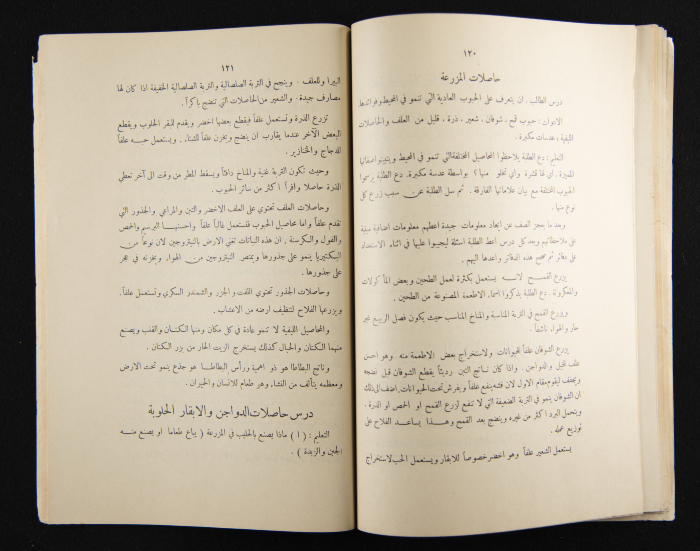 ١٢٠
حاصلات المزرعة
درس الطالب. ان يتعرف على الحبوب العادية التي تنمو في المحيط وفوائدها
الادوات: حبوب قمح، شوفان، شعير، ذرة، قليل من العلف والحاصلات
الليفية، عدسات مكبرة.
التعليم: دع الطلبة يلاحظوا المحاصيل المختلفة التي تنمو في المحيط ويتبينوا صفاتها
المميزة. أي لها قشرة واي تخلو منها؟ بواسطة عدسة مكبرة. دع الطلبة يرسموا
الحبوب المختلفة مع بيان علاماتها الفارقة. ثم سل الطلبة عن سبب زرع كل
نوع منها.
وعندما يعجز الصف عن ايجاد معلومات جيدة اعطهم معلومات اضافية مبنية
على ملاحظاتهم وبعد كل درس اعط الطلبة اسئلة ليجيبوا عليها في اثناء الاستعداد
على دفاتر ثم صحح هذه الدفاتر واعدها اليهم.
يزرع القمح لانه يستعمل بكثرة لعمل الطحين وبعض المأكولات
والمعكرونة. دع الطلبة يذكروا اسماء الاطعمة المصنوعة من الطحين.
ويزرع القمح في التربة المناسبة والمناخ المناسب حيث يكون فصل الربيع غير
حار والهواء ناشفاً.
يزرع الشوفان علفاً للحيوانات ولاستخراج بعض الاطعمة منه وهو احسن
علف للخيل والدواجن. واذا كان ناتج التبن رديئاً يقطع الشوفان قبل نضجه
ويجفف ليقوم مقام الاول لان قشه ينفع علفاً ويفرش تحت الحيوانات. اضف الى ذلك
ان الشوفان ينمو في التربة الضعيفة التي لا تنفع لزرع القمح او الحمص او الذرة،
ويتحمل البرد اكثر من غيره وينضج بعد القمح وهذا يساعد الفلاح على
توزيع عمله.
يستعمل الشعير علفاً وهو اخضر خصوصاً للابقار ويستعمل الحب لاستخراج
١٢١
البيرا وللعلف. وينجح في التربة الصلصالية والتربة الصلصالية الخفيفة اذا كان لها
مصارف جيدة. والشعير من الحاصلات التي تنضج باكراً.
تزرع الذرة وتستعمل علفاً فيقطع بعضها اخضر ويقدم للبقر الحلوب ويقطع
البعض الآخر عندما يقارب ان ينضج ويخزن علفاً للشتاء. ويستعمل حبه علفاً
للدجاج والخنازير.
وحيث تكون التربة غنية والمناخ دافئاً ويسقط المطر من وقت الى آخر تعطي
الذرة حاصلا وافراً اكثر من سائر الحبوب.
وحاصلات العلف تحتوي على العلف الاخضر والتبن والمراعي والجذور التي
تقدم علفاً واما محاصيل الحبوب فلستعمل غالباً علفاً واحسنها البرسيم والحمص
والفول والكرسنة. ان هذه النباتات تغني الارض بالنيتروجين لان نوعاً من
البكتيريا ينمو على جذورها ويمتص النيتروجين من الهواء. ويخزنه في عجر
على جذورها.
وحاصلات الجذور تحتوي اللفت والجزر والشمندر السكري وتستعمل علفاً.
ويزرعها الفلاح لتنظيف ارضه من الاعشاب.
والمحاصيل الليفية لا تنمو عادة في كل مكان ومنها الكتان والقنب ويصنع
منهما الكتان والحبال كذلك يستخرج الزيت الحار من بزر الكتان.
وناتج البطاطا هو ذو اهمية ورأس البطاطا هو جذع ينمو تحت الارض
ومعظمه يتألف من النشاء وهو طعام للانسان والحيوان.
درس حاصلات الدواجن والابقار الحلوبة
التعليم: (١) ماذا يصنع بالحليب في المزرعة (يباع طعاما او يصنع منه
الجبن والزبدة).